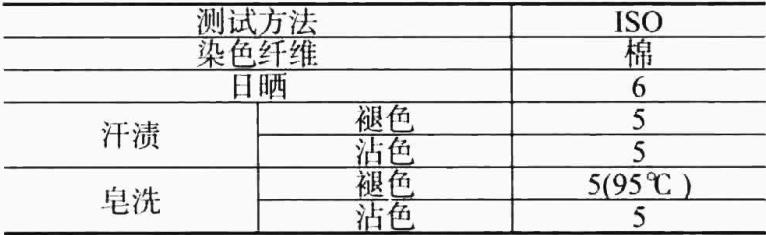 测试方法 ISO
染色纤维 棉
日晒 6
汗渍 褪色 5
沾色 5
皂洗 褪色 5(95℃)
沾色 5